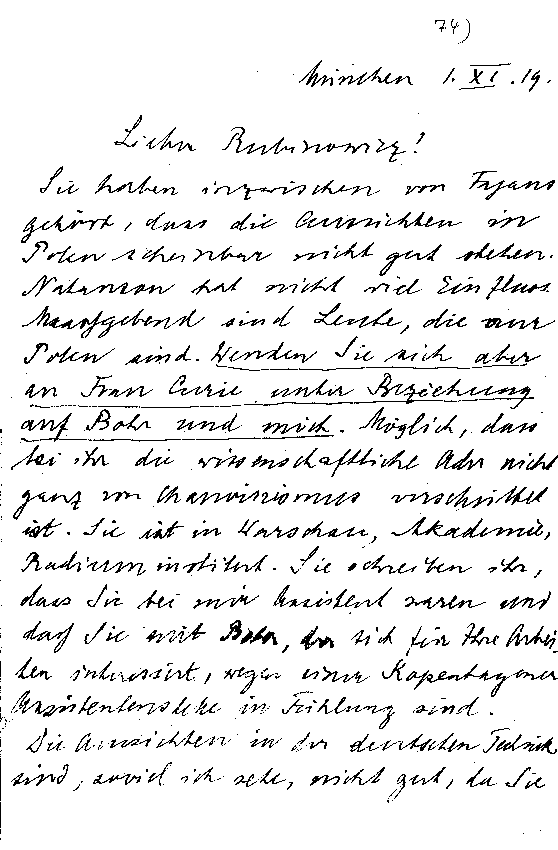 74)
München 1. XI. 19.
Lieber Rubinowicz!
Sie haben inzwischen von Fajans
gehört, dass die Aussichten in
Polen scheinbar nicht gut stehen.
Natanson hat nicht viel Einfluss
Maassgebend sind Leute, die nur
Polen sind. Wenden Sie sich aber
an Frau Curie unter Beziehung
auf Bohr und mich. Möglich, dass
bei ihr die wissenschaftliche Ader nicht
ganz von Chauvinismus verschüttet
ist. Sie ist in Warschau, Akademie,
Radiuminstitut. Sie schreiben ihr,
dass Sie bei mir Assistent waren und
daß Sie mit Bohr, der sich für Ihre Arbei-
ten interessirt, wegen einer Kopenhagener
Assistentenstelle in Fühlung sind.
Die Aussichten in der deutschen Technik
sind, soviel ich sehe, nicht gut, da Sie